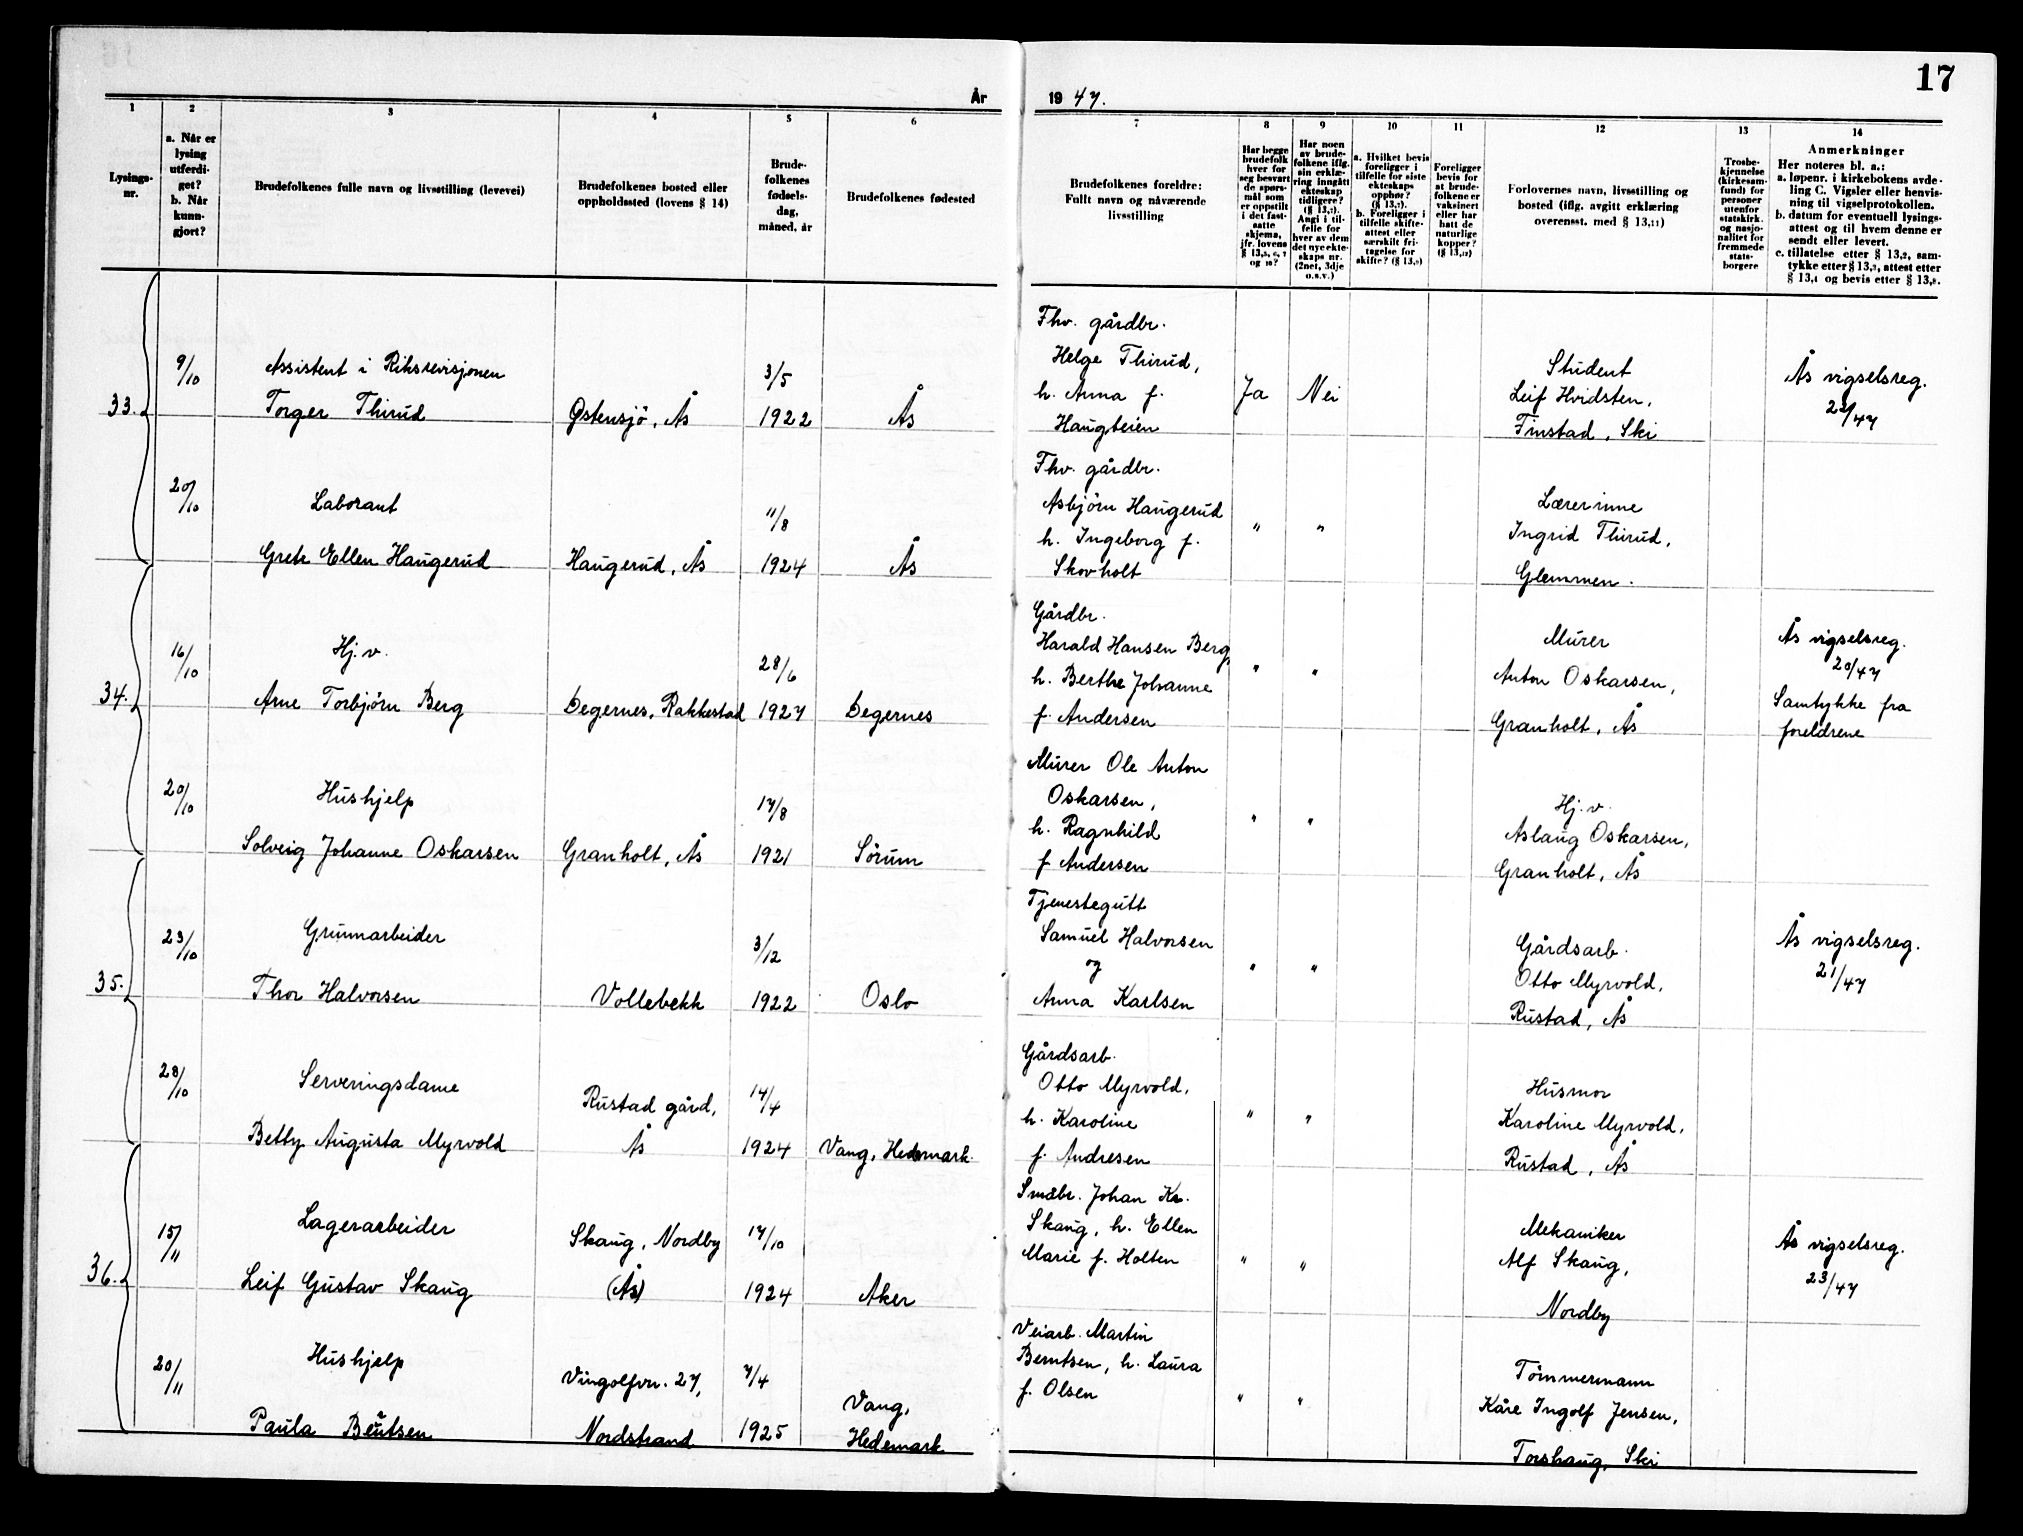 17
År 1947.
1
2
3
4
5
6
7
8
9
10
11
12
13
14
Lysings-
nr.
a. Når er
lysing
utferdi-
get?
b. Når
kunn-
gjort?
Brudefolkenes fulle navn og livsstilling (levevei)
Brudefolkenes bosted eller
oppholdssted (lovens § 14)
Brude-
folkenes
fødsels-
dag,
måned, år
Brudefolkenes fødested
Brudefolkenes foreldre:
Fullt navn og nåværende
livsstilling
Har begge
brudefolk
hver for
seg besvart
de spørs-
mål som
er oppstilt
i det fast-
satte
skjema,
jfr. lovens
§ 13,5, 6, 7
og 10?
Har noen
av brude-
folkene iflg.
sin erklæ-
ring inngått
ekteskap
tidligere?
(§ 13,7).
Angi i til-
felle for
hver av dem
det nye ekte-
skaps nr.
(2net, 3dje
o.s.v.)
a. Hvilket bevis
foreligger i
tilfelle for siste
ekteskaps
opphør?
(§ 13,7).
b. Foreligger i
tilfelle skifte-
attest eller
særskilt fri-
tagelse for
skifte? (§ 13,9)
Foreligger
bevis for
at brude-
folkene er
vaksinert
eller har
hatt de
naturlige
kopper?
(§ 13,12)
Forlovernes navn, livsstilling og
bosted (iflg. avgitt erklæring
overensst. med § 13,11)
Trosbe-
kjennelse
(kirkesam-
fund) for
personer
utenfor
statskirk.
og nasjo-
nalitet for
fremmede
stats-
borgere
Anmerkninger
Her noteres bl. a.:
a. løpenr. i kirkebokens avde-
ling C. Vigsler eller henvis-
ning til vigselprotokollen.
b. datum for eventuell lysings-
attest og til hvem denne er
sendt eller levert.
c. tillatelse etter § 13,2, sam-
tykke etter § 13,3, attest etter
§ 13,4 og bevis etter § 13,8.
33.
9/10
Assistent i Riksrevisjonen
Torger Thirud
Østensjö, Ås
3/5
1922
Ås
Fhv. gårdbr.
Helge Thirud,
h. Anna f.
Haugteien
Ja
Nei
Student
Leif Hvidsten,
Finstad, Ski
Ås vigselsreg.
22/47
20/10
Laborant
Grete Ellen Haugerud
Haugerud, Ås
11/8
1924
Ås
Fhv. gårdbr.
Asbjörn Haugerud
h. Ingeborg f.
Skovholt
"
"
Lærerinne
Ingrid Thirud,
Glemmen.
34.
16/10
Hj. v.
Arne Torbjörn Berg
Degernes, Rakkestad
28/6
1927
Degernes
Gårdbr.
Harald Hansen Berg,
h. Berthe Johanne
f. Andersen
"
"
Murer
Anton Oskarsen,
Granholt, Ås
Ås vigselsreg.
20/47
Samtykke fra
foreldrene
20/10
Hushjelp
Solveig Johanne Oskarsen
Granholt, Ås
17/8
1921
Sörum
Murer Ole Anton
Oskarsen,
h. Ragnhild
f Andersen
"
"
Hj. v.
Aslaug Oskarsen,
Granholt, Ås
35.
23/10
Grunnarbeider
Thor Halvorsen
Vollebekk
3/12
1922
Oslo
Tjenestegutt
Samuel Halvorsen
og
Anna Karlsen
"
"
Gårdsarb.
Otto Myrvold,
Rustad, Ås
Ås vigselsreg.
21/47
28/10
Serveringsdame
Betty Augusta Myrvold
Rustad gård,
Ås
14/4
1924
Vang, Hedmark.
Gårdsarb.
Otto Myrvold,
h. Karoline
f. Andresen
"
"
Husmor
Karoline Myrvold,
Rustad, Ås
36.
15/11
Lagerarbeider
Leif Gustav Skaug
Skaug, Nordby
(Ås)
17/10
1924
Aker
Småbr. Johan Kr.
Skaug, h. Ellen
Marie f. Holten
"
"
Mekaniker
Alf Skaug,
Nordby
Ås vigselsreg.
23/47
20/11
Hushjelp
Paula Berntsen
Vingolfvn. 27,
Nordstrand
7/4
1925
Vang,
Hedemark
Veiarb. Martin
Berntsen, h. Laura
f. Olsen
"
"
Tömmermann
Kåre Ingolf Jensen,
Torshaug, Ski